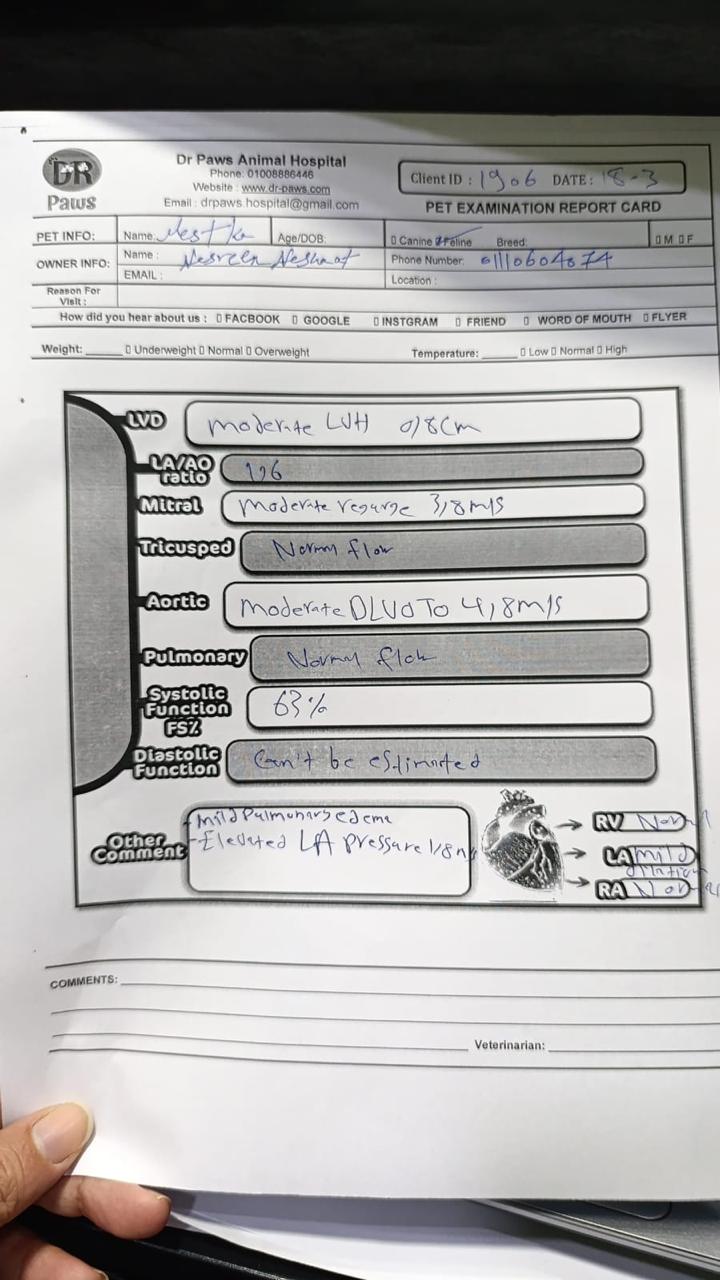 DR
Paws
Dr Paws Animal Hospital
Phone: 01008886446
Website : www.dr-paws.com
Email : drpaws.hospital@gmail.com
Client ID : 1906 DATE: 18-3
PET EXAMINATION REPORT CARD
PET INFO: Name: Age/DOB: Canine Feline Breed: M F
OWNER INFO: Name : Nesreen Neshaat Phone Number: 01110604874
EMAIL : Location :
Reason For
Visit :
How did you hear about us : FACBOOK GOOGLE INSTGRAM FRIEND WORD OF MOUTH FLYER
Weight: Underweight Normal Overweight Temperature: Low Normal High
LVD moderate LVH 0,8 Cm
LA/AO
ratio 1,6
Mitral moderate regurge 3,8 m/s
Tricusped Normal flow
Aortic moderate DLVOTO 4,8 m/s
Pulmonary Normal flow
Systolic
Function
FS% 63%
Diastolic
Function Can't be estimated
Other
Comment
- mild Pulmonary edema
- Elevated LA pressure 1,8
RV Normal
LA mild
dilation
RA Normal
COMMENTS:
Veterinarian: